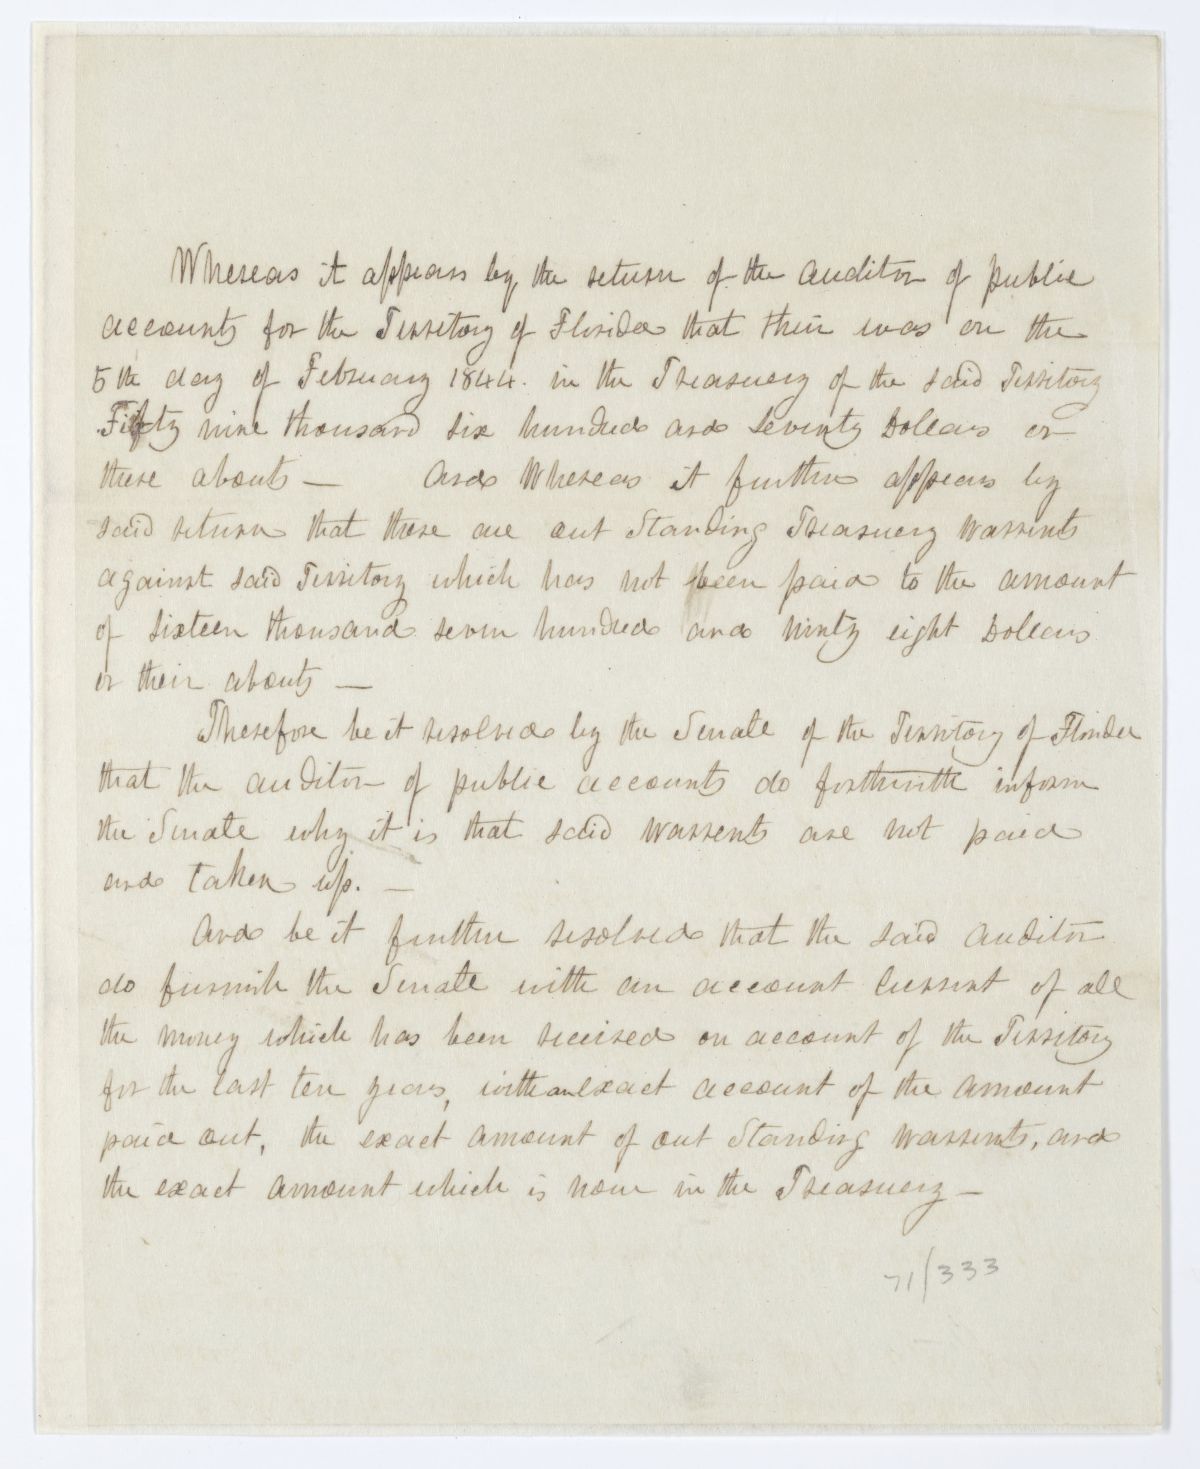 Whereas it appears by the return of the auditor of public
accounts for the Territory of Florida that their was on the
5th day of February 1844. in the Treasuery of the said Territory
Fifty nine thousand six hundred and Seventy Dollars or
there abouts — And Whereas it further appears by
said return that there are out Standing Treasuery Warrents
against said Territory which has not been paid to the amount
of Sixteen thousand seven hundred and ninty eight Dollars
or their abouts —
Therefore be it resolved by the Senate of the Territory of Florida
that the auditor of public accounts do forthwith inform
the Senate why it is that said Warrents are not paid
and taken up. —
And be it further resolved that the said auditor
do furnish the Senate with an account Current of all
the money which has been received on account of the Territory
for the last ten years, with an exact account of the amount
paid out, the exact amount of out Standing Warrents, and
the exact amount which is now in the Treasuery —
71/333